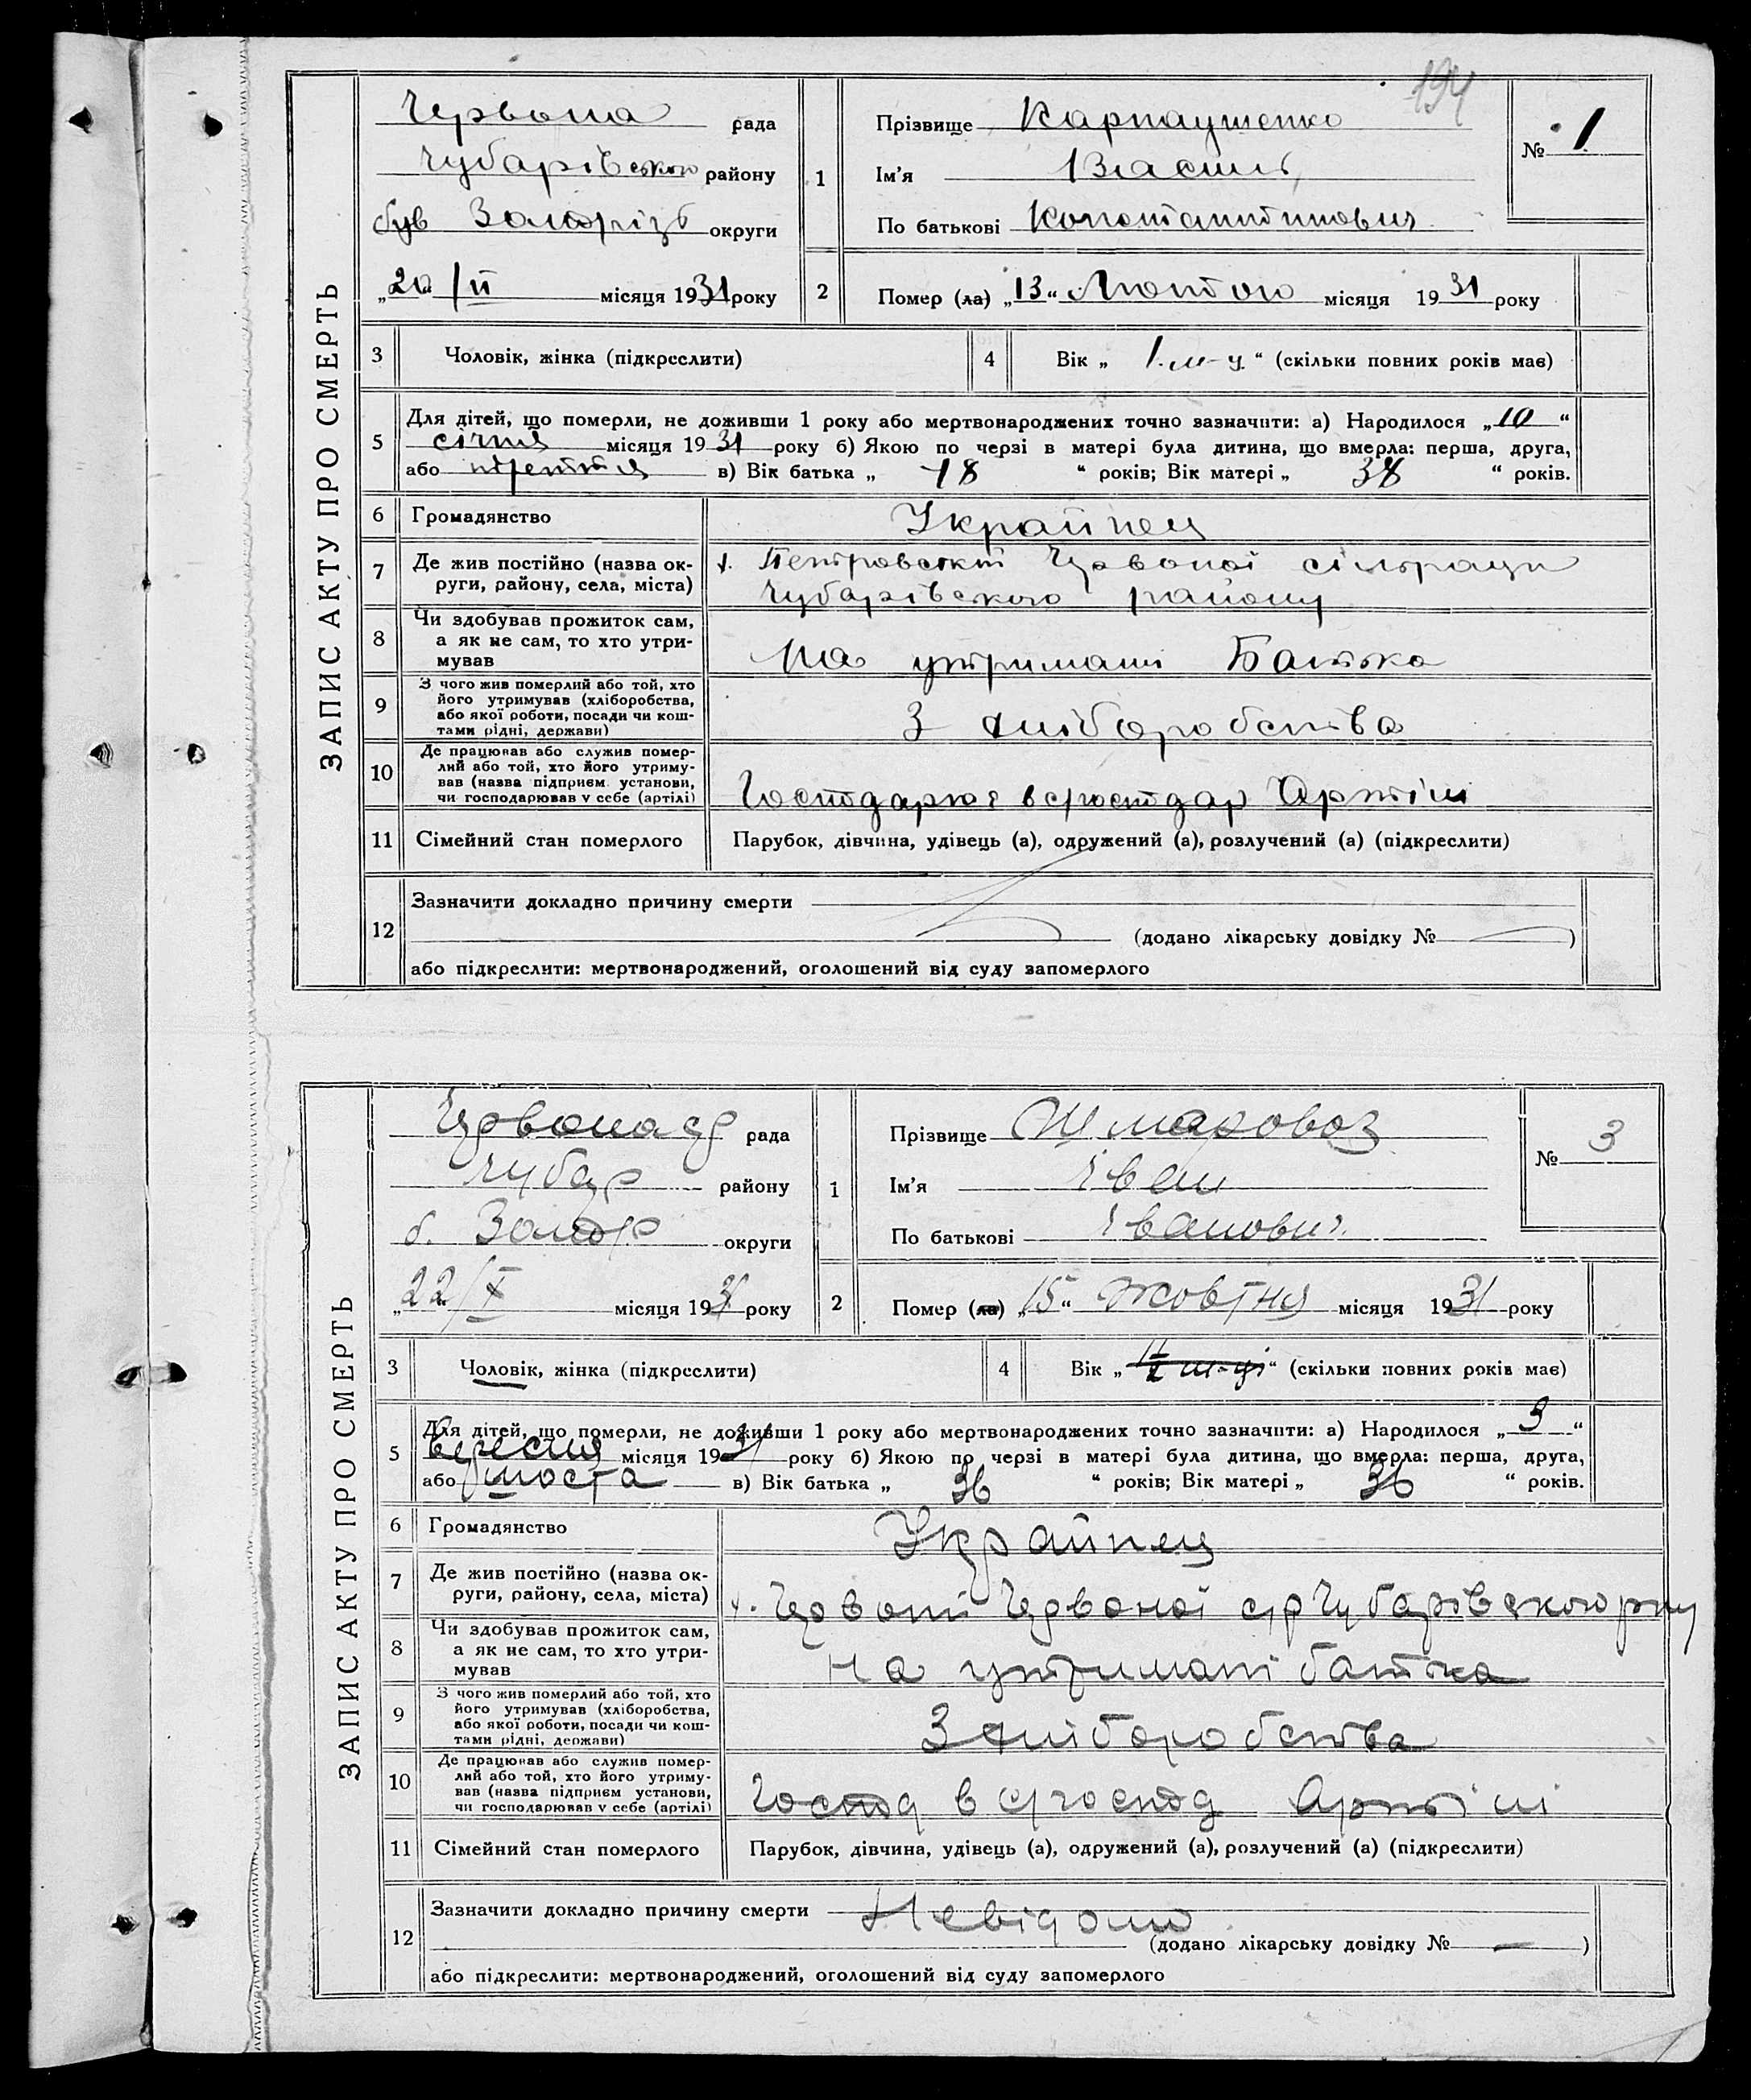 194
ЗАПИС АКТУ ПРО СМЕРТЬ
Червона рада
Чубарівського району
був Запоріз округи
„20“/II місяця 1931 року
1 Прізвище Карпаушенко
Ім'я Василь
По батькові Константинович
№ 1
2 Помер (ла) „13“ Лютого місяця 1931 року
3 Чоловік, жінка (підкреслити)
4 Вік „1 м-ц“ (скільки повних років має)
5 Для дітей, що померли, не доживши 1 року або мертвонароджених точно зазначити: а) Народилося „10“
січня місяця 1931 року б) Якою по черзі в матері була дитина, що вмерла: перша, друга,
або третття в) Вік батька „ “ років; Вік матері „38“ років.
6 Громадянство Українец
7 Де жив постійно (назва ок-
руги, району, села, міста)
х. Петровскті Червоної сільради
Чубарівського району
8 Чи здобував прожиток сам,
а як не сам, то хто утри-
мував
На утримані Батька
9 З чого жив померлий або той, хто
його утримував (хліборобства,
або якої роботи, посади чи кош-
тами рідні, держави)
З хліборобства
10 Де працював або служив помер-
лий або той, хто його утриму-
вав (назва підприєм. установи,
чи господарював у себе (артілі)
Господарює в с/господар Артілі
11 Сімейний стан померлого Парубок, дівчина, удівець (а), одружений (а), розлучений (а) (підкреслити)
12 Зазначити докладно причину смерти
(додано лікарську довідку № )
або підкреслити: мертвонароджений, оголошений від суду запомерлого
ЗАПИС АКТУ ПРО СМЕРТЬ
Червона с/р рада
Чубар району
б. Запор округи
„22“/X місяця 1931 року
1 Прізвище Шмаровоз
Ім'я Іван
По батькові Іванович
№ 3
2 Помер (ла) „15“ Жовтня місяця 1931 року
3 Чоловік, жінка (підкреслити)
4 Вік „ м-ці“ (скільки повних років має)
5 Для дітей, що померли, не доживши 1 року або мертвонароджених точно зазначити: а) Народилося „3“
вересня місяця 1931 року б) Якою по черзі в матері була дитина, що вмерла: перша, друга,
або шоста в) Вік батька „36“ років; Вік матері „36“ років.
6 Громадянство Українец
7 Де жив постійно (назва ок-
руги, району, села, міста)
х. Червоні Червоної с/р Чубарівского р-ну
8 Чи здобував прожиток сам,
а як не сам, то хто утри-
мував
На утримані батька
9 З чого жив померлий або той, хто
його утримував (хліборобства,
або якої роботи, посади чи кош-
тами рідні, держави)
З хліборобства
10 Де працював або служив помер-
лий або той, хто його утриму-
вав (назва підприєм. установи,
чи господарював у себе (артілі)
Господ в с/господ Артілі
11 Сімейний стан померлого Парубок, дівчина, удівець (а), одружений (а), розлучений (а) (підкреслити)
12 Зазначити докладно причину смерти Невідомо
(додано лікарську довідку № — )
або підкреслити: мертвонароджений, оголошений від суду запомерлого